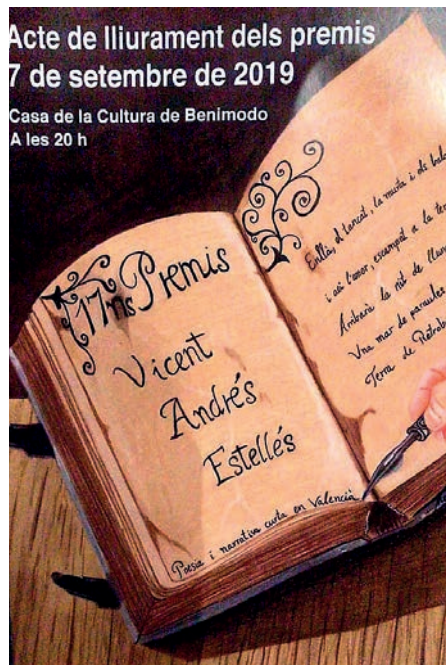 Acte de lliurament dels premis
7 de setembre de 2019
Casa de la Cultura de Benimodo
A les 20 h
17ns Premis
Vicent
Andrés
Estellés
Poesia i narrativa curta en Valencià
Enllà, el tancat, la murta i els
i ací l'amor, escampat a la
Arribarà la nit de
Una mar de paraules
Terra de